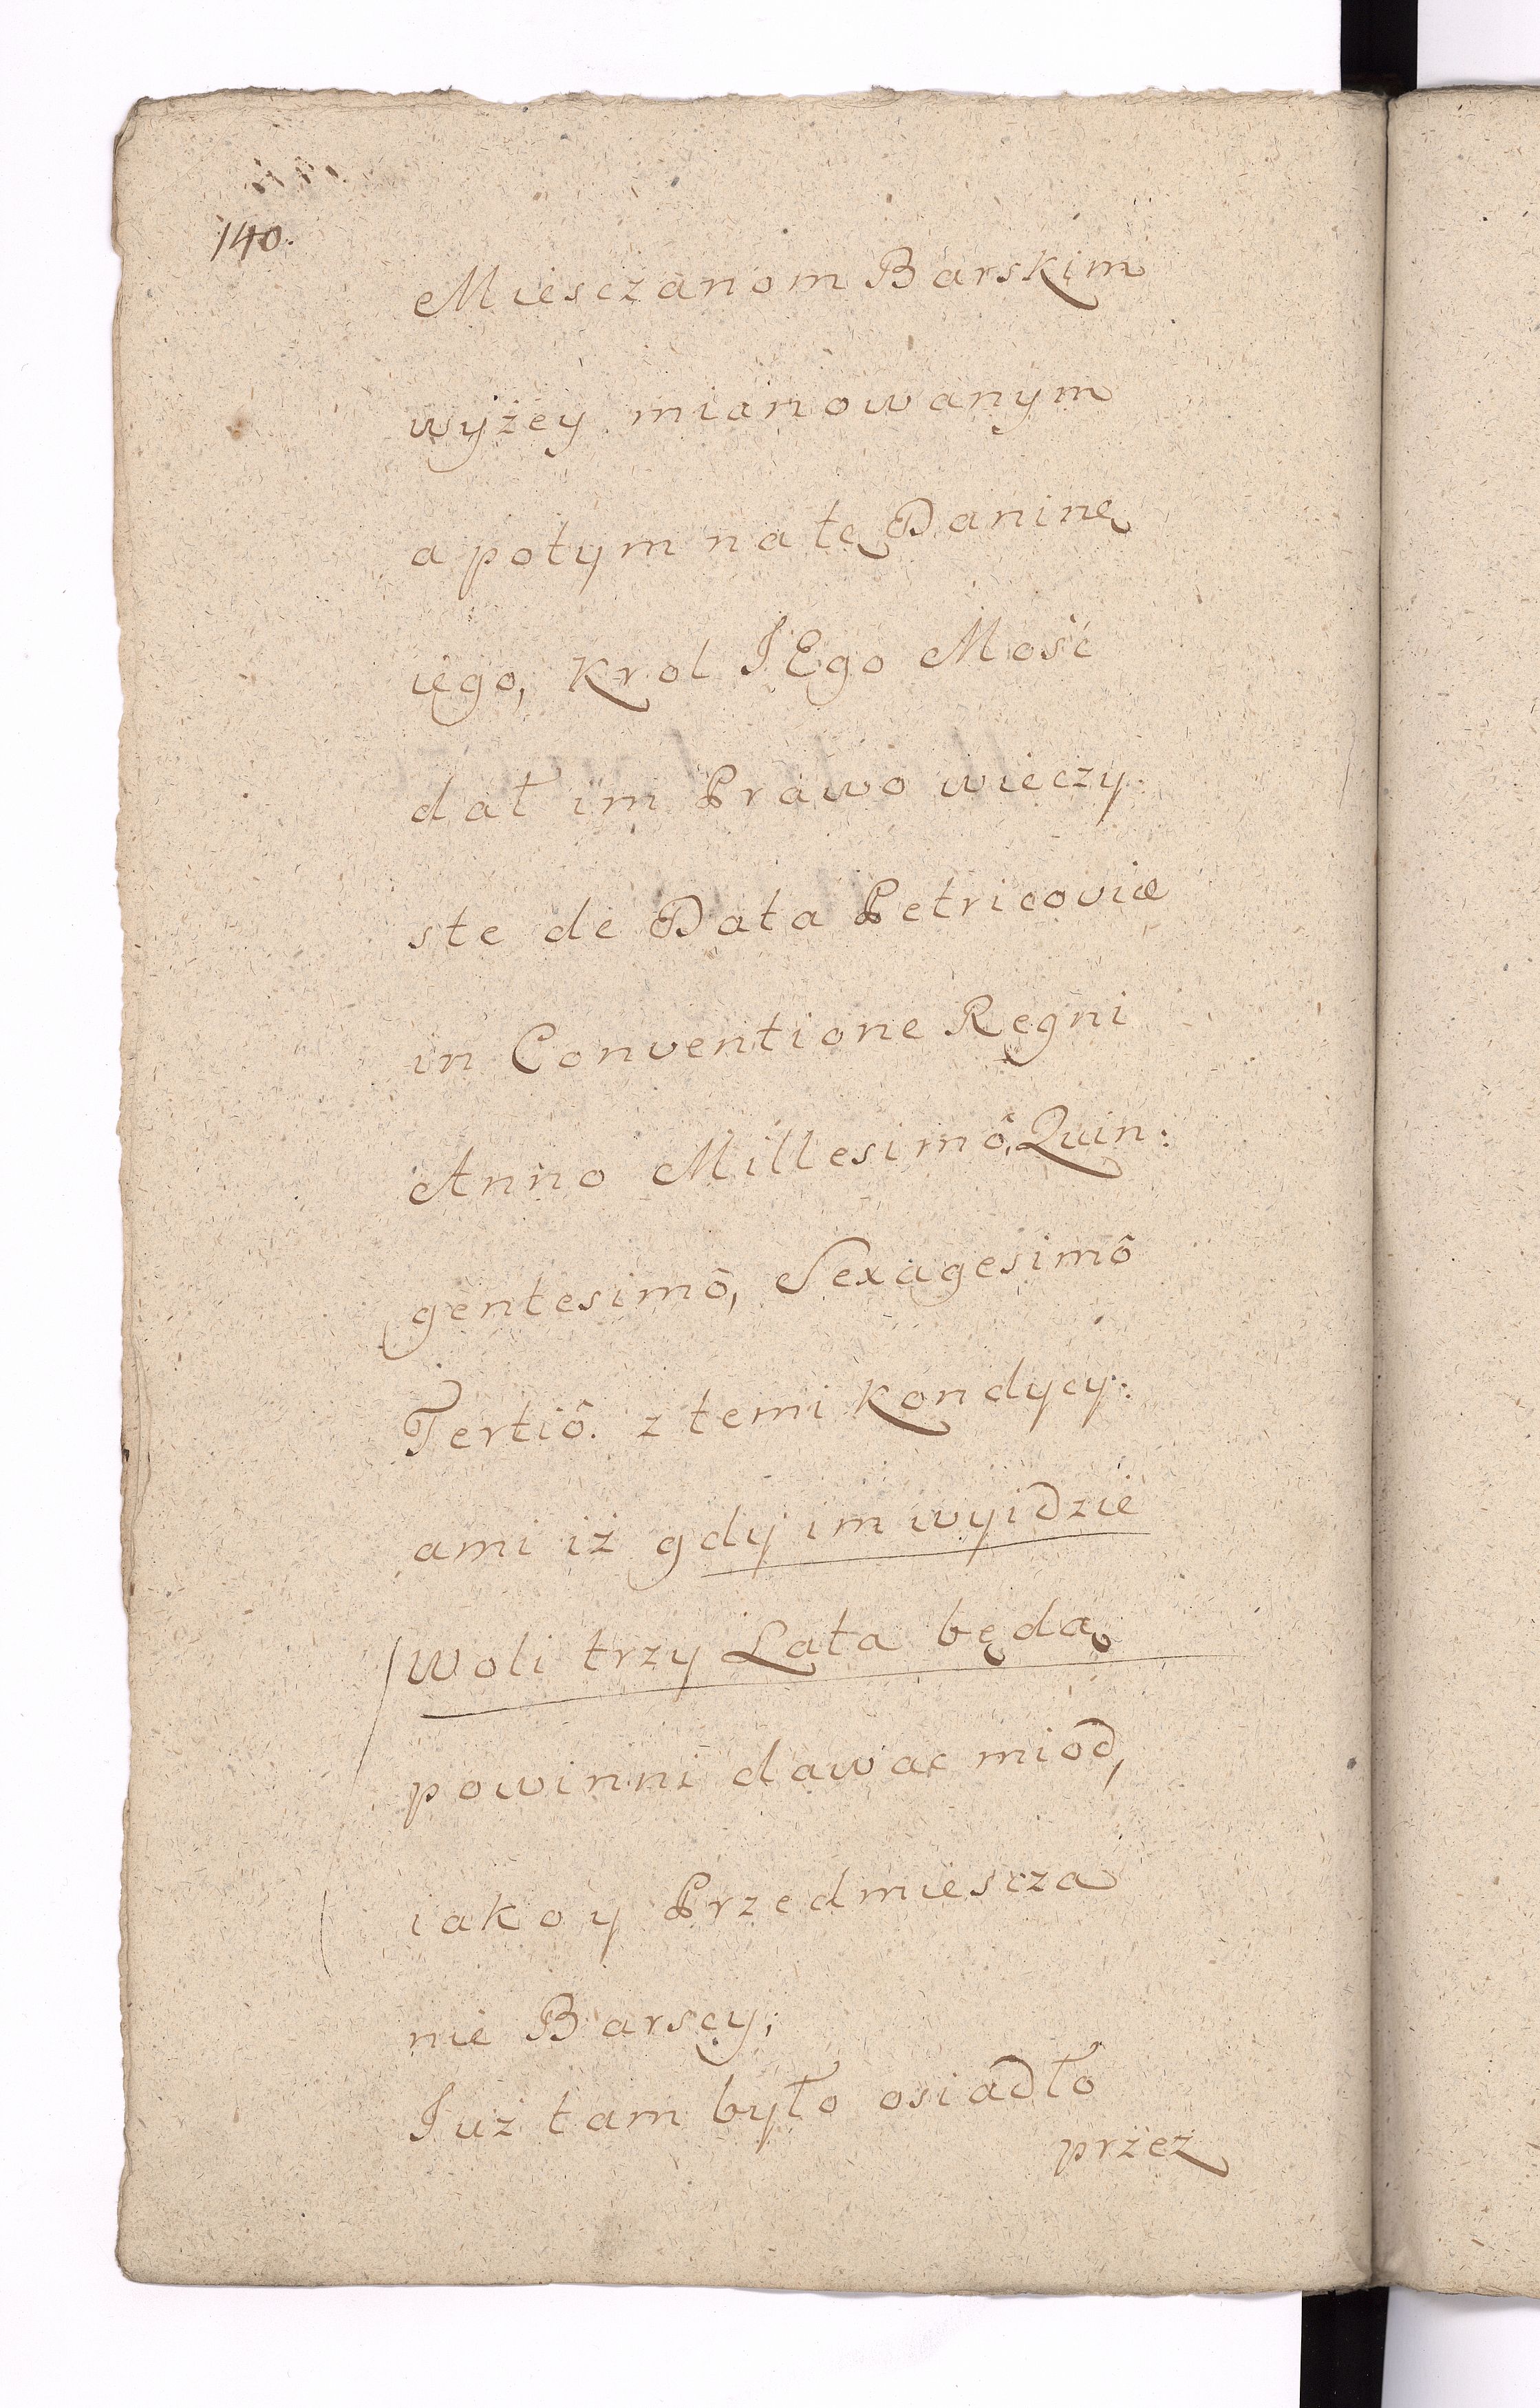 140.
Miesczanom Barskim
wyżey mianowanym
a potym na tę Daninę
iego, Krol JEgo Mość
dał im Prawo wieczy:
ste de Data Petricoviæ
in Conventione Regni
Anno Millesimô, Quin:
gentesimô, Sexagesimô
Tertiô. z temi Kondycy:
ami iż gdy im wyidzie
Woli trzy Lata będą
powinni dawac miod,
iako y Przedmiescza
nie Barscy;
Juz tam było osiadło
przez